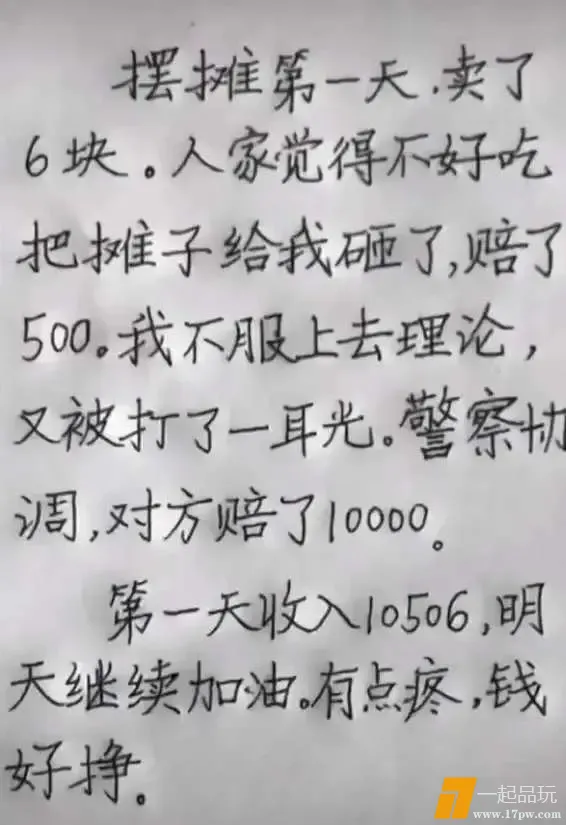 摆摊第一天.卖了
6块。人家觉得不好吃
把摊子给我砸了,赔了
500。我不服上去理论，
又被打了一耳光。警察协
调,对方赔了10000。
第一天收入10506,明
天继续加油。有点疼,钱
好挣。
一起品玩
www.17pw.com